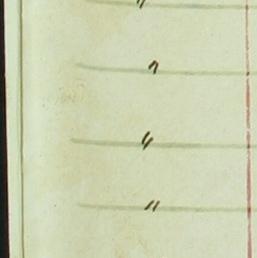 "
"
"
"